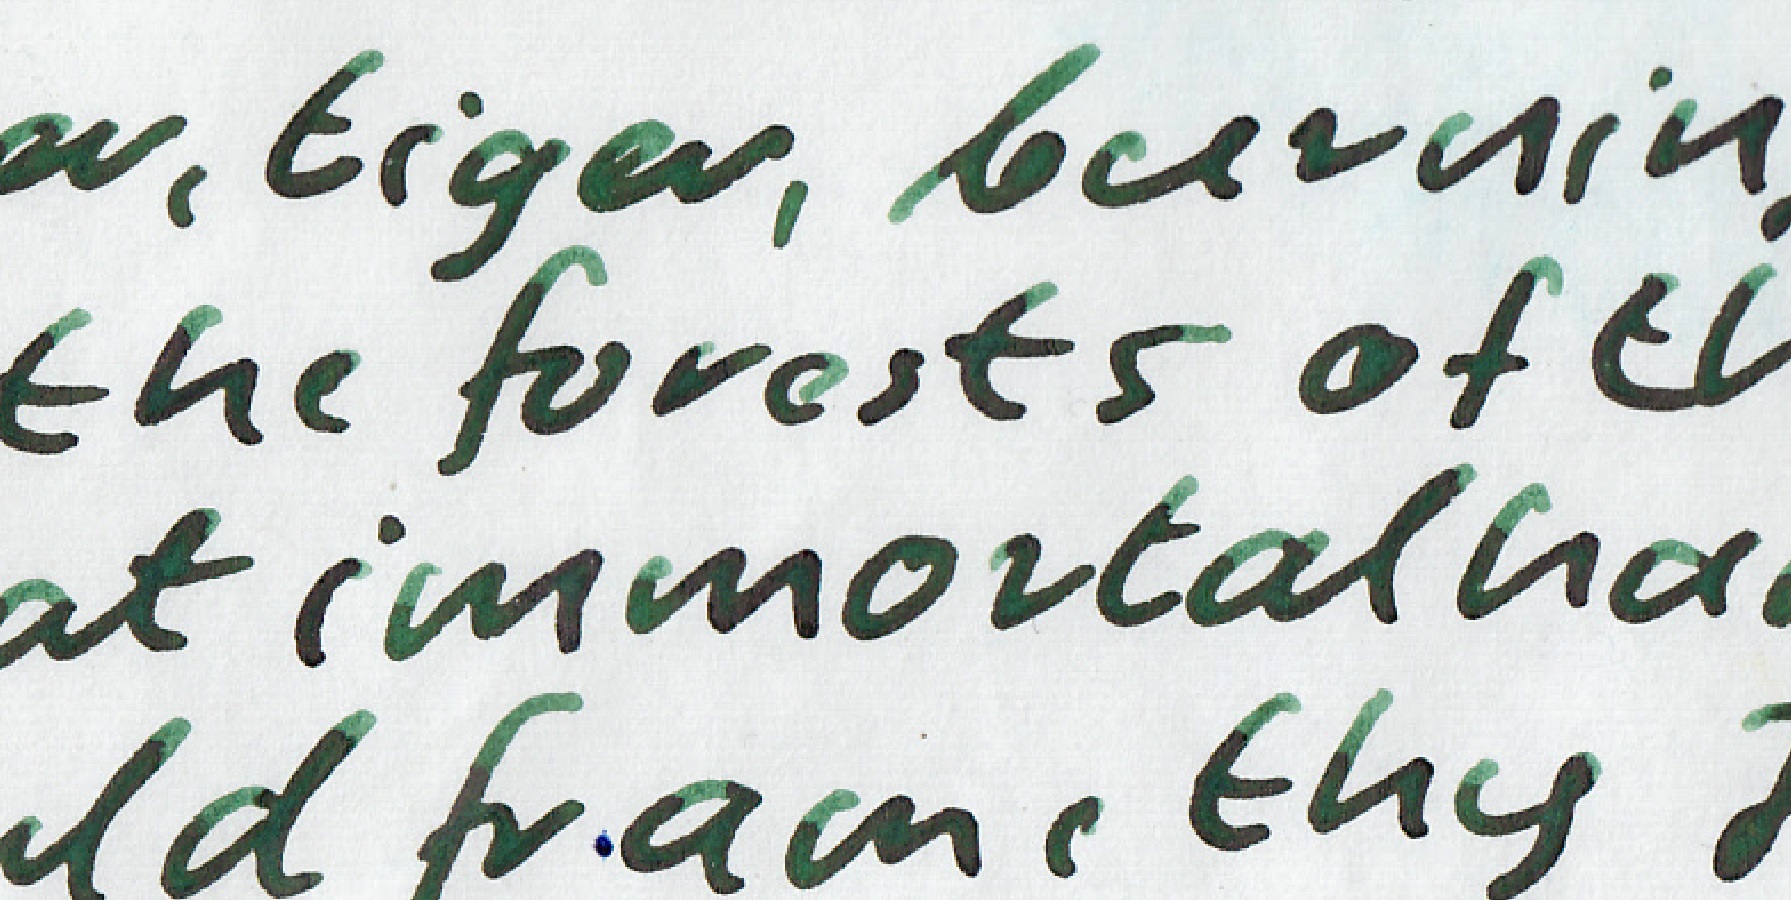 er, tiger, burnin
the forests of th
at immortal ha
uld frame thy